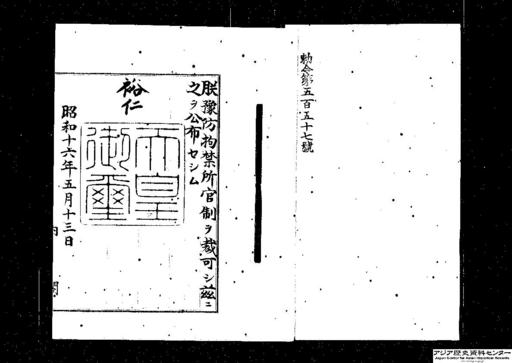 勅令第五百五十七號
朕豫防拘禁所官制ヲ裁可シ茲ニ
之ヲ公布セシム
裕仁
天皇御璽
昭和十六年五月十三日
内
閣
アジア歴史資料センター
Japan Center for Asian Historical Records